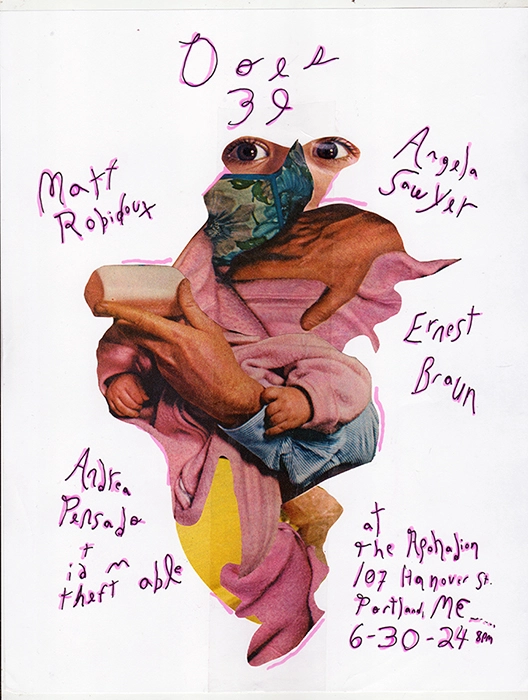 Does
39
Matt
Robidoux
Angela
Sawyer
Ernest
Braun
Andrea
Pensado
+
id m
theft able
at
the Apohadion
107 Hanover St.
Portland, ME
6-30-24 8PM